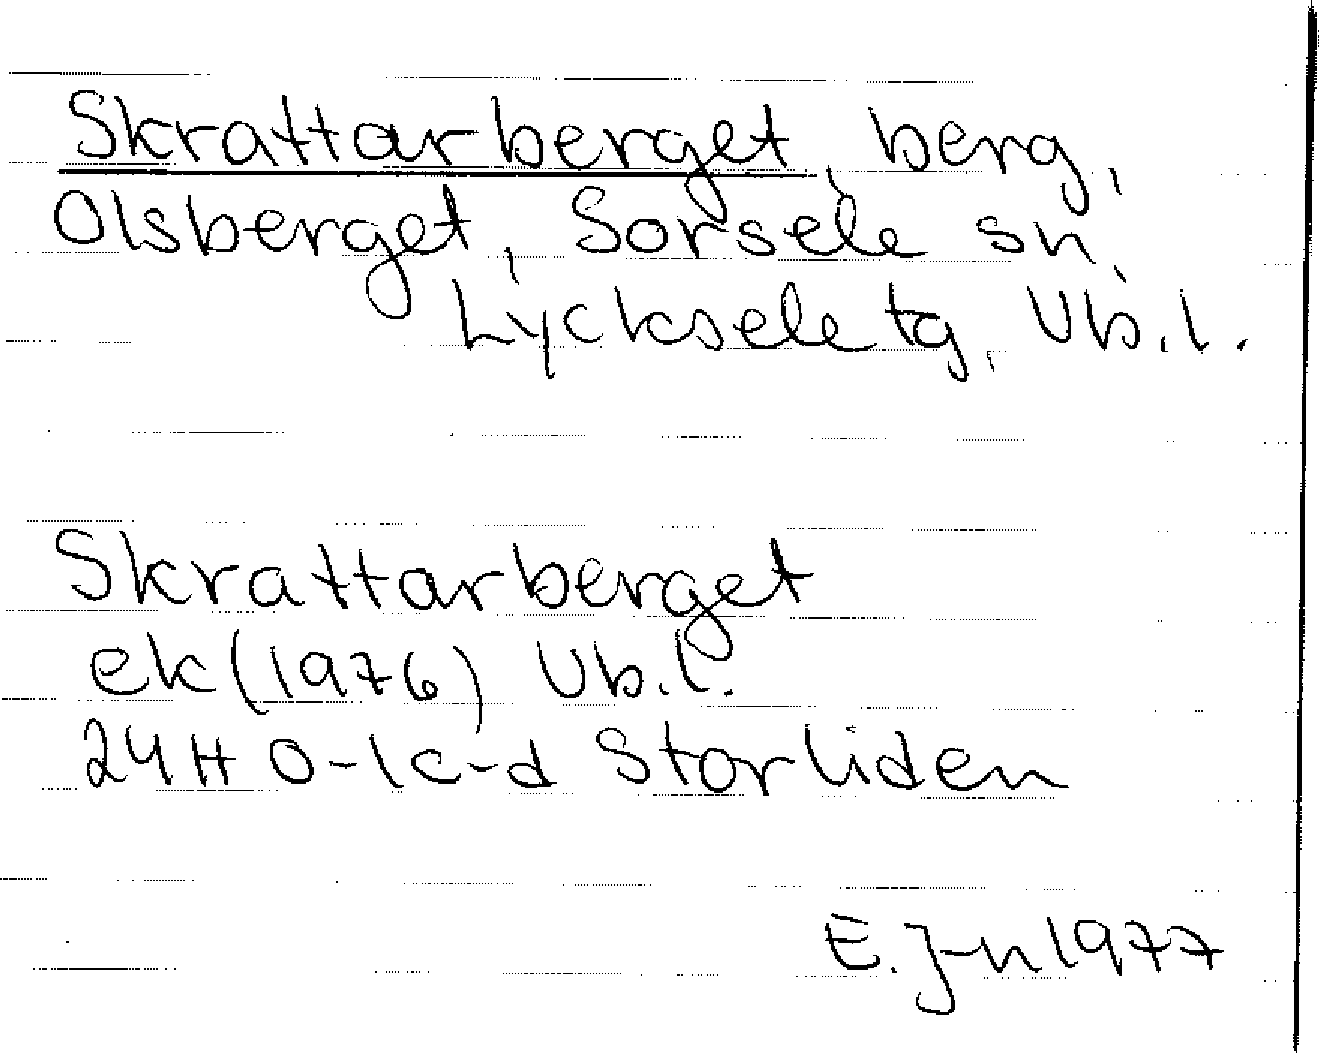 Skrattarberget, berg,
Olsberget, Sorsele sn,
Lycksele tg, Vb.l.
Skrattarberget
ek (1976) Vb.l.
24H 0-1c-d Storliden
E. J-n 1977